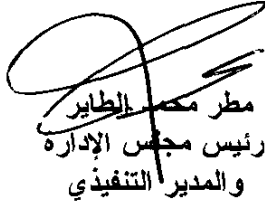 مطر محمد الطاير
رئيس مجلس الإدارة
والمدير التنفيذي